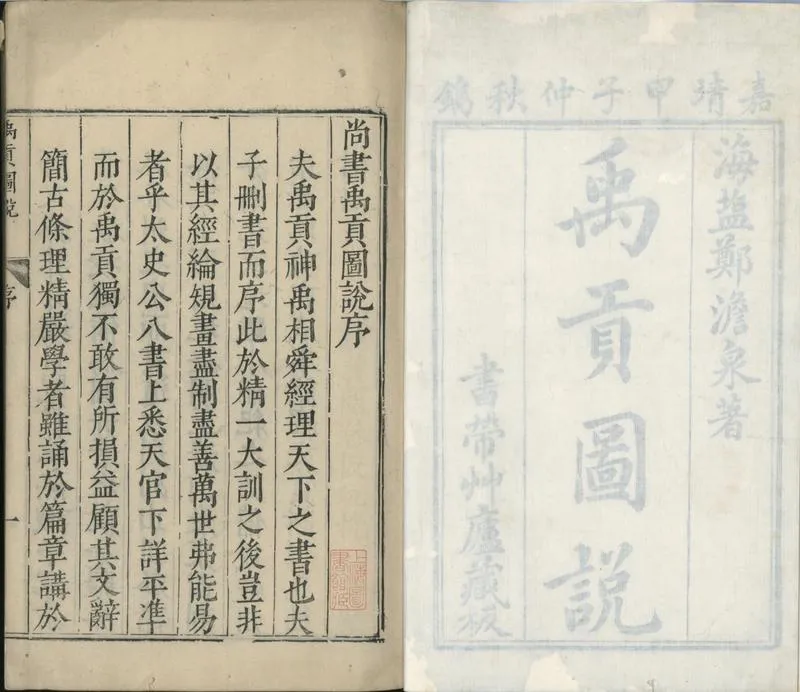 嘉靖甲子仲秋鐫
海鹽鄭澹泉著
禹貢圖說
書帶艸廬藏板
尚書禹貢圖說序
夫禹貢神禹相舜經理天下之書也夫
子刪書而序此於精一大訓之後豈非
以其經綸規畫盡制盡善萬世弗能易
者乎太史公八書上悉天官下詳平準
而於禹貢獨不敢有所損益顧其文辭
簡古條理精嚴學者雖誦於篇章講於
禹貢圖說
序
一